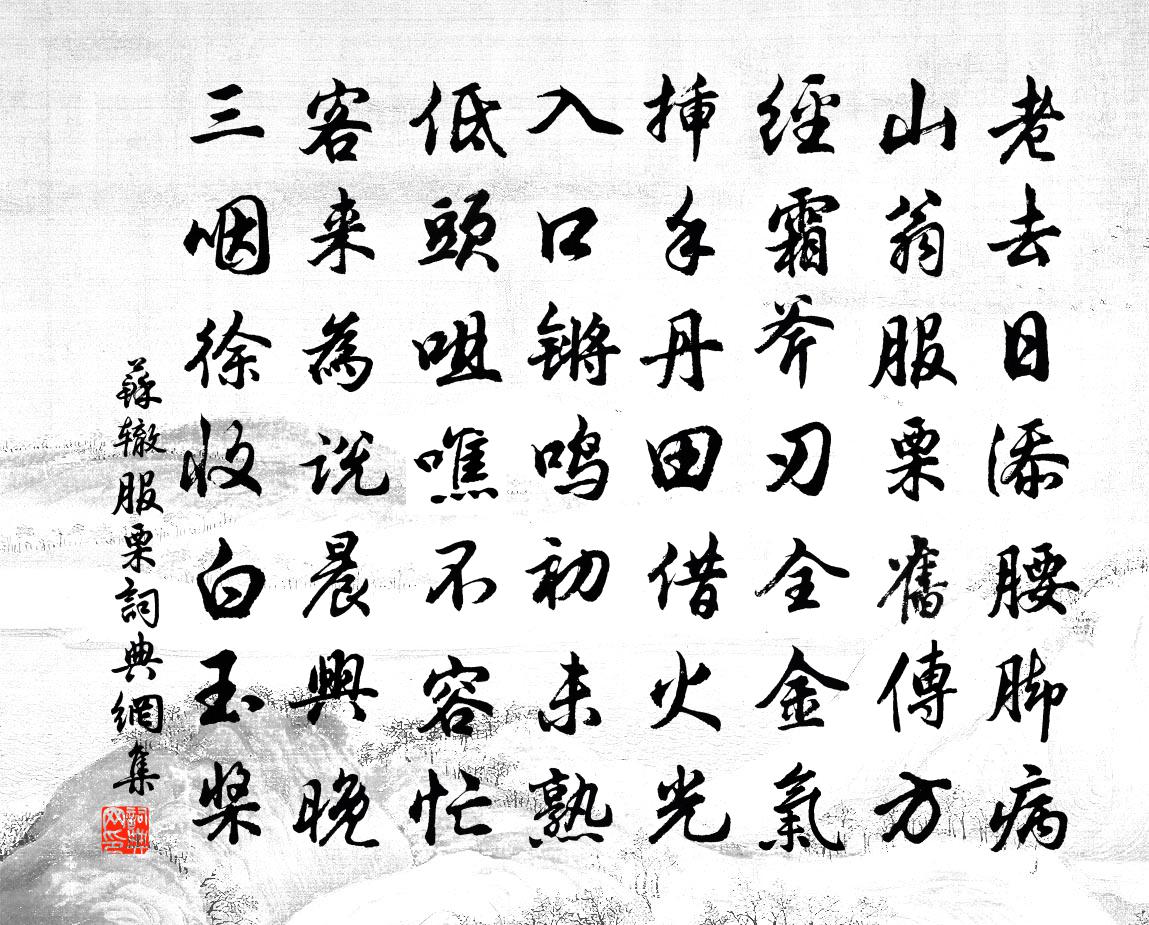 老去日添腰脚病
山翁服栗舊傳方
經霜斧刃全金氣
插手丹田借火光
入口锵鸣初未熟
低頭咀噍不容忙
客来為説晨興晚
三咽徐收白玉漿
蘇辙服栗詞典網集